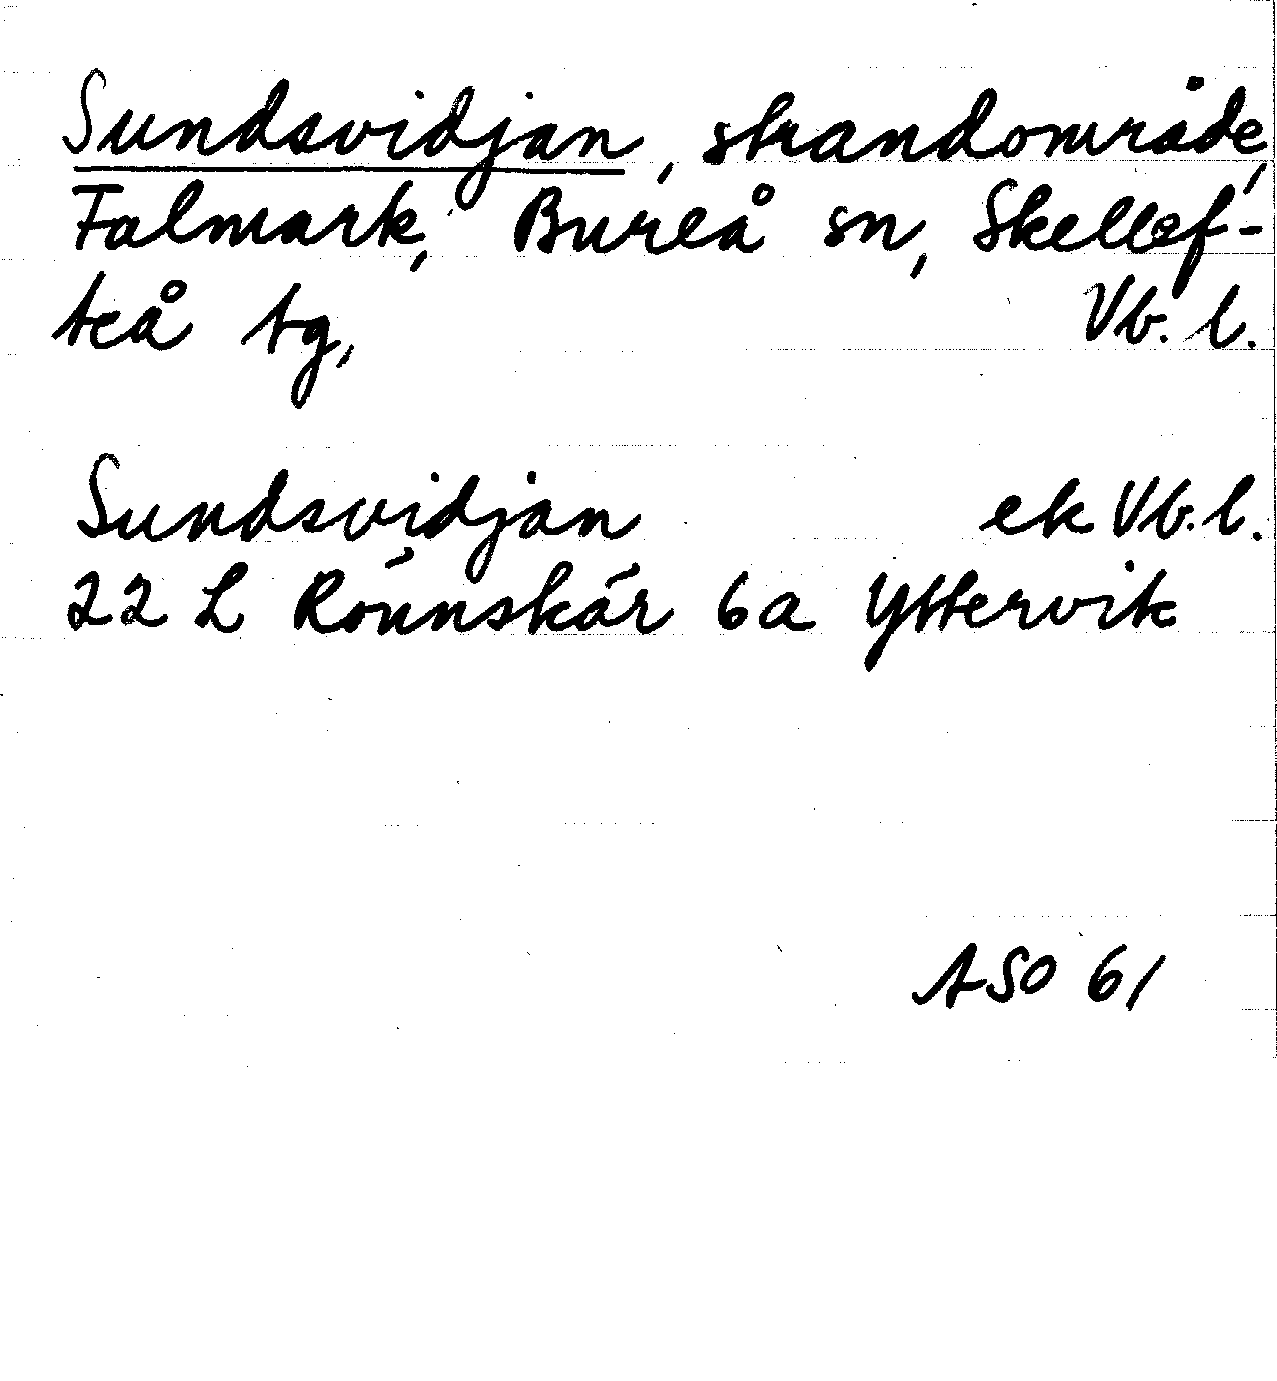 Sundsvidjan, strandområde,
Falmark, Bureå sn, Skellef-
teå tg, Vb. l.
Sundsvidjan ek Vb. l.
22 L Rönnskär 6a Yttervik
ASO 61